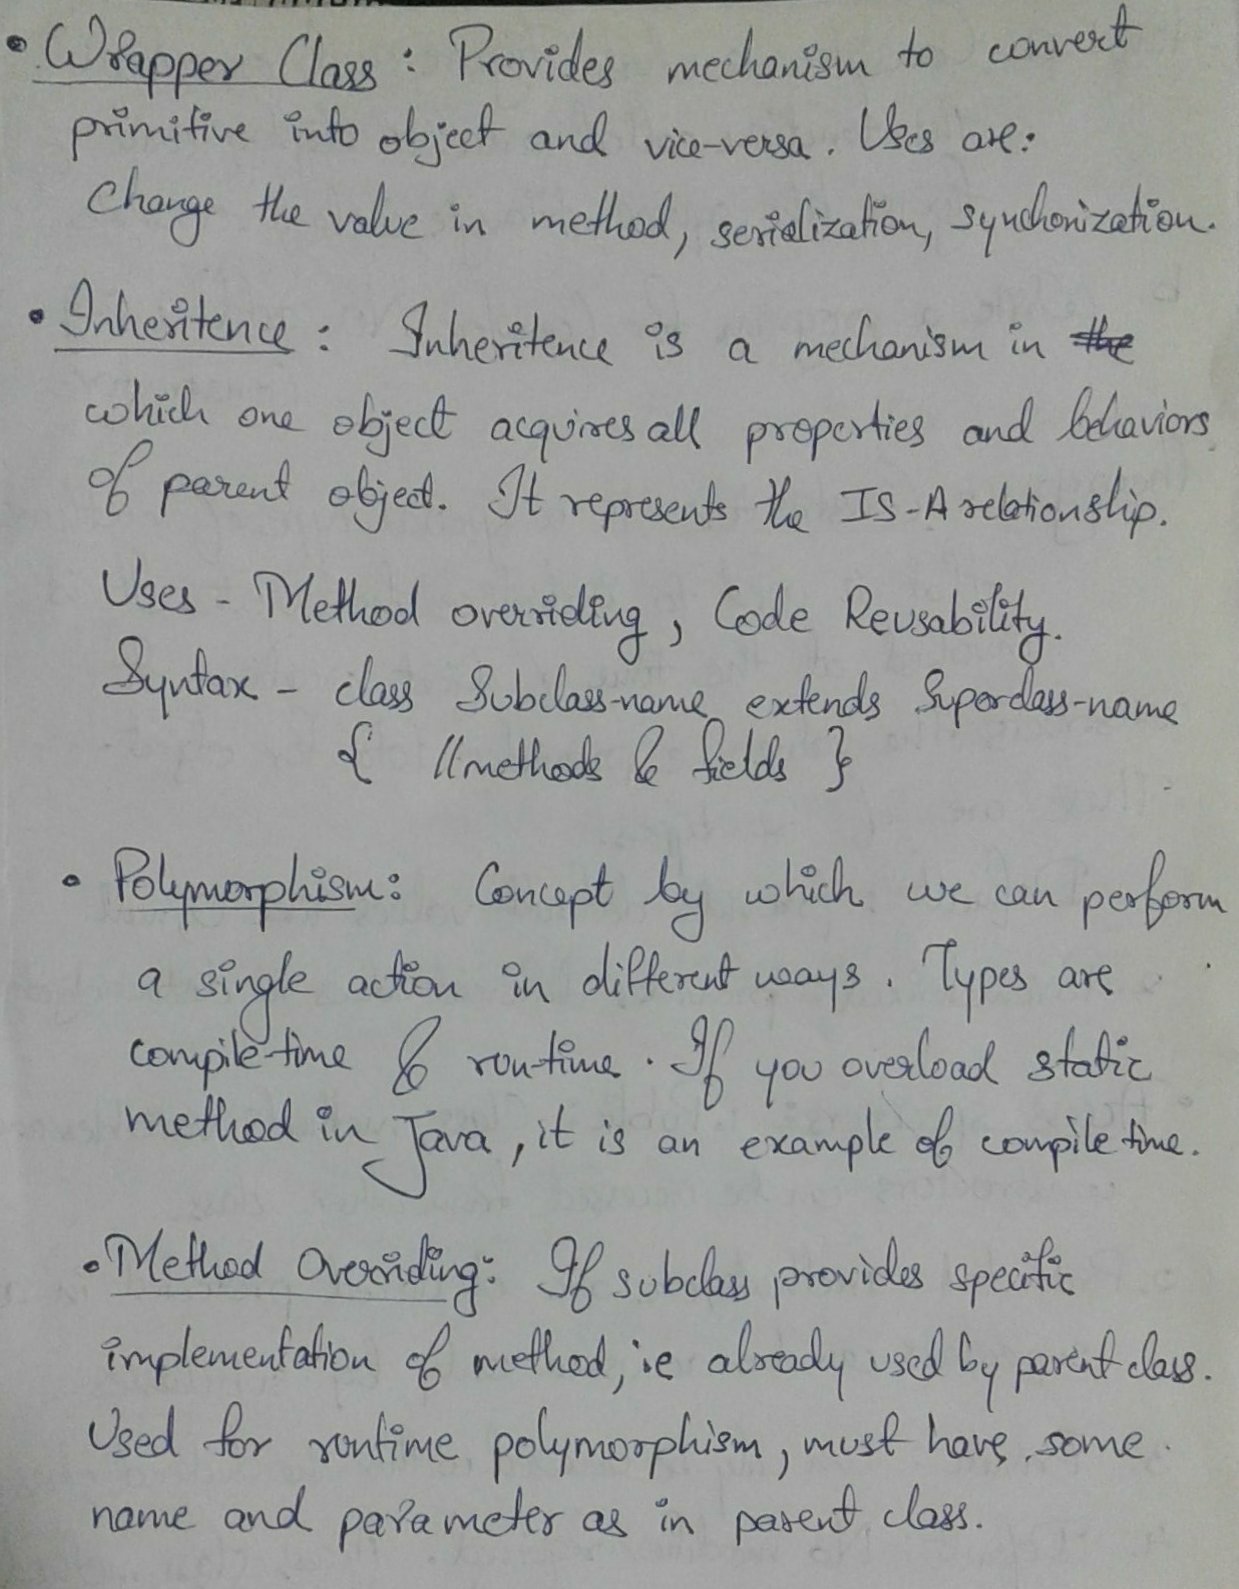 • Wrapper Class : Provides mechanism to convert
primitive into object and vice-versa. Uses are:
Change the value in method, serialization, synchonization.
• Inheritence : Inheritence is a mechanism in the
which one object acquires all properties and behaviors
of parent object. It represents the IS-A relationship.
Uses - Method overriding, Code Reusability.
Syntax - class Subclass-name extends Superclass-name
{ //methods & fields }
• Polymorphism: Concept by which we can perform
a single action in different ways. Types are
compile-time & run-time. If you overload static
method in Java, it is an example of compile time.
• Method Overriding: If subclass provides specific
implementation of method, ie already used by parent class.
Used for runtime polymorphism, must have some
name and parameter as in parent class.